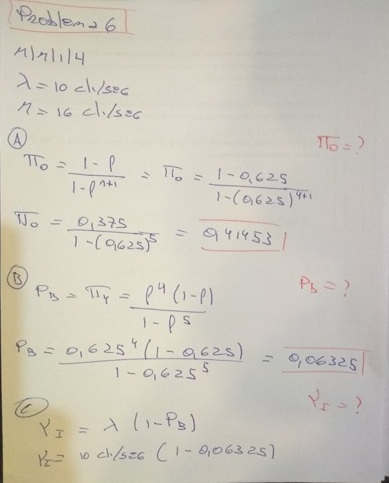 Problema 6
M/M/1/4
λ = 10 cli/seg
μ = 16 cli/seg
A
Π0 = ?
Π0 = (1-ρ)/(1-ρ^(n+1)) = Π0 = (1-0,625)/(1-(0,625)^(4+1))
Π0 = 0,375/(1-(0,625)^5) = 0,41453
B
PB = ?
PB = Π4 = ρ^4 (1-ρ)/(1-ρ^5)
PB = 0,625^4 (1-0,625)/(1-0,625^5) = 0,06325
C
γI = ?
γI = λ (1-PB)
γI = 10 cli/seg (1-0,06325)